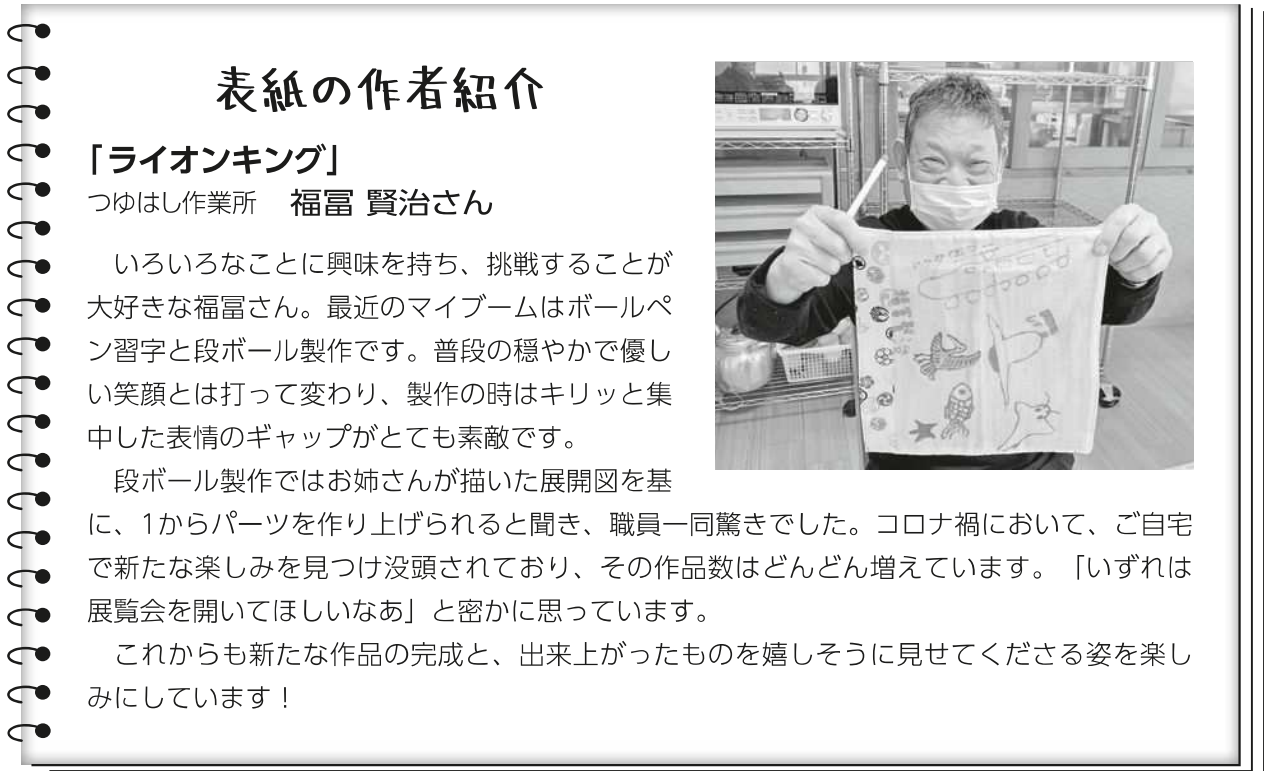 表紙の作者紹介
「ライオンキング」
つゆはし作業所　福冨 賢治さん
　いろいろなことに興味を持ち、挑戦することが
大好きな福冨さん。最近のマイブームはボールペ
ン習字と段ボール製作です。普段の穏やかで優し
い笑顔とは打って変わり、製作の時はキリッと集
中した表情のギャップがとても素敵です。
　段ボール製作ではお姉さんが描いた展開図を基
に、1からパーツを作り上げられると聞き、職員一同驚きでした。コロナ禍において、ご自宅
で新たな楽しみを見つけ没頭されており、その作品数はどんどん増えています。「いずれは
展覧会を開いてほしいなあ」と密かに思っています。
　これからも新たな作品の完成と、出来上がったものを嬉しそうに見せてくださる姿を楽し
みにしています！